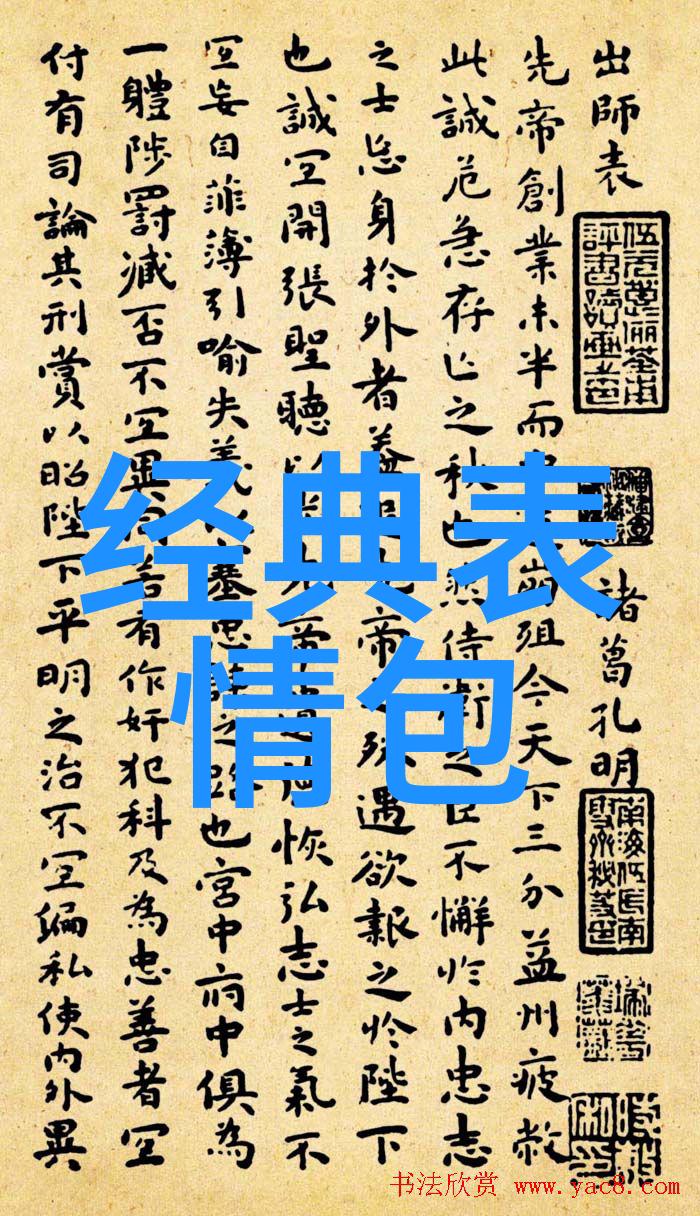 经典表
情包
出師表
諸葛孔明
先帝創業未半而崩殂今天下三分益州疲敝
此誠危急存亡之秋也然侍衛之臣不懈於内忠志
之士忘身於外者蓋追先帝之殊遇欲報之於陛下
也誠宜開張聖聽以光先帝遺德恢弘志士之氣不
宜妄自菲薄引喻失義以塞忠諫之路也宮中府中俱為
一體陟罰臧否不宜異同若有作奸犯科及為忠善者宜
付有司論其刑賞以昭陛下平明之治不宜偏私使内外異
书法欣赏 www.yac8.com